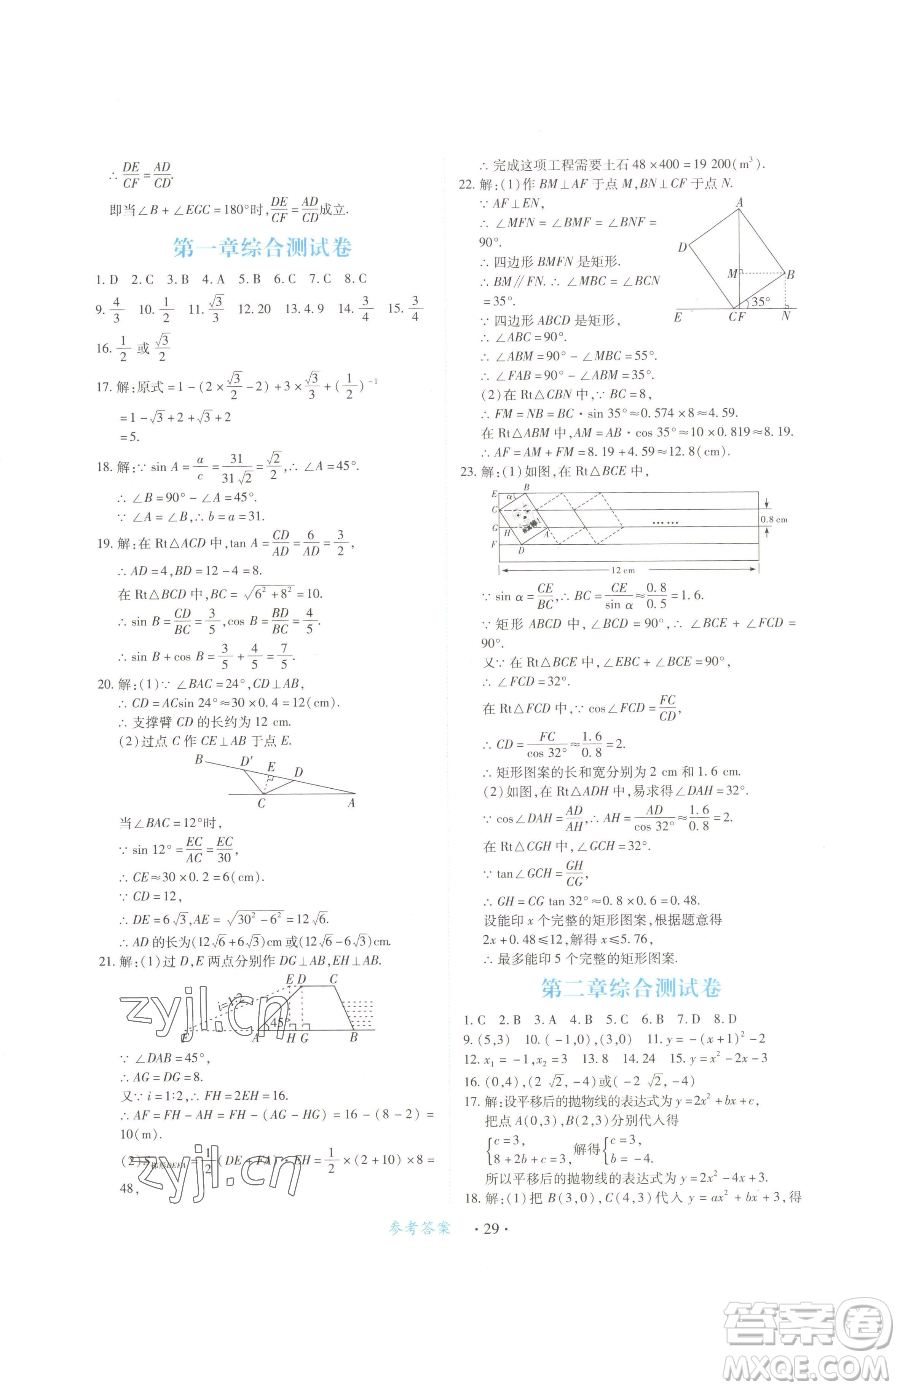 ∴ DE/CF = AD/CD.
即当∠B+∠EGC=180°时, DE/CF = AD/CD 成立.
第一章综合测试卷
1. D 2. C 3. B 4. A 5. B 6. C 7. C 8. C
9. 4/3 10. 1/2 11. √3/3 12. 20 13. 4.9 14. 3/4 15. 3/4
16. 1/2 或 √3/2
17. 解:原式=1-(2×√3/2-2)+3×√3/3+(1/2)⁻¹
=1-√3+2+√3+2
=5.
18. 解:∵sin A=a/c=31/31√2=√2/2,∴∠A=45°.
∴∠B=90°-∠A=45°.
∵∠A=∠B,∴b=a=31.
19. 解:在Rt△ACD中,tan A=CD/AD=6/AD=3/2,
∴AD=4,BD=12-4=8.
在Rt△BCD中,BC=√(6²+8²)=10.
∴sin B=CD/BC=3/5,cos B=BD/BC=4/5.
∴sin B+cos B=3/5+4/5=7/5.
20. 解:(1)∵∠BAC=24°,CD⊥AB,
∴CD=ACsin 24°≈30×0.4=12(cm).
∴支撑臂CD的长约为12 cm.
(2)过点C作CE⊥AB于点E.
B D′ E D C A
当∠BAC=12°时,
∵sin 12°=EC/AC=EC/30,
∴CE≈30×0.2=6(cm).
∵CD=12,
∴DE=6√3,AE=√(30²-6²)=12√6.
∴AD的长为(12√6+6√3)cm或(12√6-6√3)cm.
21. 解:(1)过D,E两点分别作DG⊥AB,EH⊥AB.
E D C
i=1:2
45°
F A H G B
∵∠DAB=45°,
∴AG=DG=8.
又∵i=1:2,∴FH=2EH=16.
∴AF=FH-AH=FH-(AG-HG)=16-(8-2)=
10(m).
(2)S梯形DEFA=1/2(DE+FA)·EH=1/2×(2+10)×8=
48,
∴完成这项工程需要土石48×400=19 200(m³).
22. 解:(1)作BM⊥AF于点M,BN⊥CF于点N.
∵AF⊥EN,
∴∠MFN=∠BMF=∠BNF=
90°.
∴四边形BMFN是矩形.
∴BM∥FN.∴∠MBC=∠BCN
=35°.
∵四边形ABCD是矩形,
∴∠ABC=90°.
∴∠ABM=90°-∠MBC=55°.
∴∠FAB=90°-∠ABM=35°.
A D M B 35° E CF N
(2)在Rt△CBN中,∵BC=8,
∴FM=NB=BC·sin 35°≈0.574×8≈4.59.
在Rt△ABM中,AM=AB·cos 35°≈10×0.819≈8.19.
∴AF=AM+FM=8.19+4.59≈12.8(cm).
23. 解:(1)如图,在Rt△BCE中,
E α B C G H A F D …… 0.8 cm
12 cm
∵sin α=CE/BC,∴BC=CE/sin α≈0.8/0.5=1.6.
∵矩形ABCD中,∠BCD=90°,∴∠BCE+∠FCD=
90°.
又∵在Rt△BCE中,∠EBC+∠BCE=90°,
∴∠FCD=32°.
在Rt△FCD中,∵cos∠FCD=FC/CD,
∴CD=FC/cos 32°≈1.6/0.8=2.
∴矩形图案的长和宽分别为2 cm和1.6 cm.
(2)如图,在Rt△ADH中,易求得∠DAH=32°.
∵cos∠DAH=AD/AH,∴AH=AD/cos 32°≈1.6/0.8=2.
在Rt△CGH中,∠GCH=32°.
∵tan∠GCH=GH/CG,
∴GH=CG tan 32°≈0.8×0.6=0.48.
设能印x个完整的矩形图案,根据题意得
2x+0.48≤12,解得x≤5.76,
∴最多能印5个完整的矩形图案.
第二章综合测试卷
1. C 2. B 3. A 4. D 5. B 6. B 7. D 8. D
9. (5,3) 10. (-1,0),(3,0) 11. y=-(x+1)²-2
12. x₁=-1,x₂=3 13. 8 14. 24 15. y=x²-2x
16. (0,4),(2√2,-4)或(-2√2,-4)
17. 解:设平移后的抛物线的表达式为y=2x²+bx+c,
把点A(0,3),B(2,3)分别代入得
{c=3, 8+2b+c=3, 解得{c=3, b=-4.
所以平移后的抛物线的表达式为y=2x²-4x+3.
18. 解:(1)把B(3,0),C(4,3)代入y=ax²+bx+3,得
参考答案 ·29·
zyjl.cn
zyjl.cn
答案圈
MXQE.COM